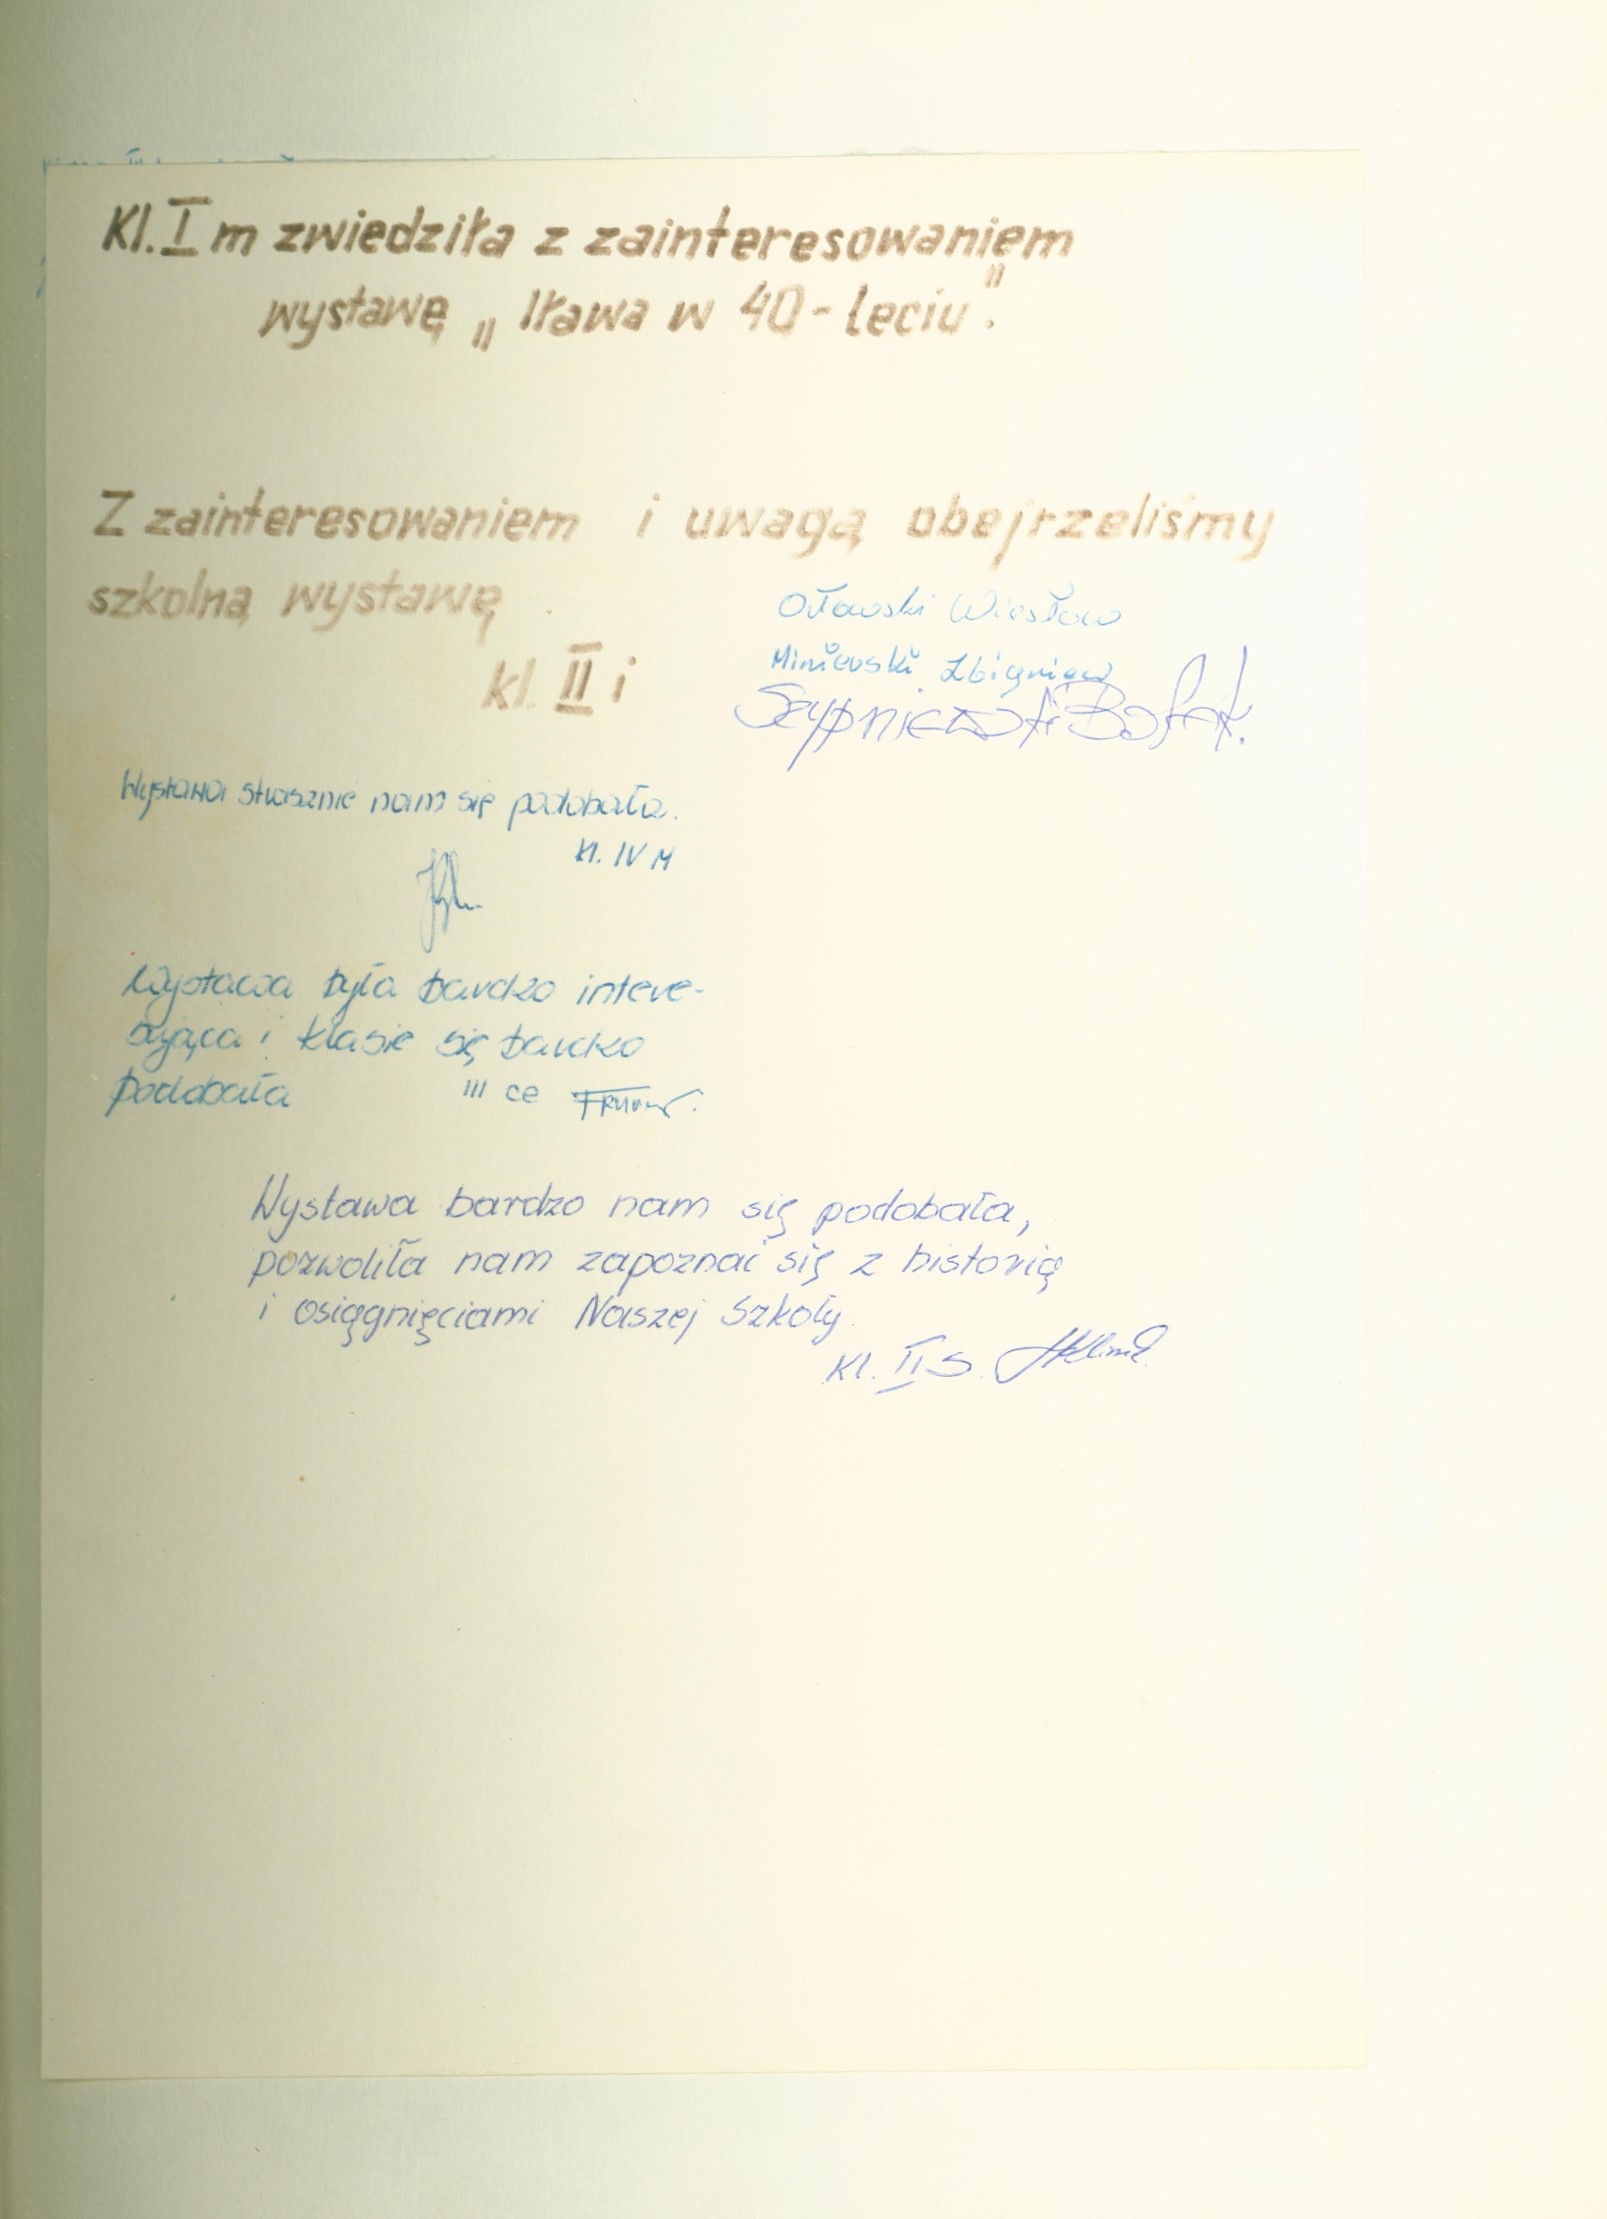 Kl. I m zwiedziła z zainteresowaniem
wystawę „Iława w 40-leciu".
Z zainteresowaniem i uwagą obejrzeliśmy
szkolną wystawę
kl. II i
Orłowski Wiesław
Miniewski Zbigniew
Wystawa strasznie nam się podobała.
Kl. IV M
Wystawa była bardzo intere-
sująca i klasie się bardzo
podobała III ce
Wystawa bardzo nam się podobała,
pozwoliła nam zapoznać się z historią
i osięgnięciami Naszej Szkoły.
Kl. II S.